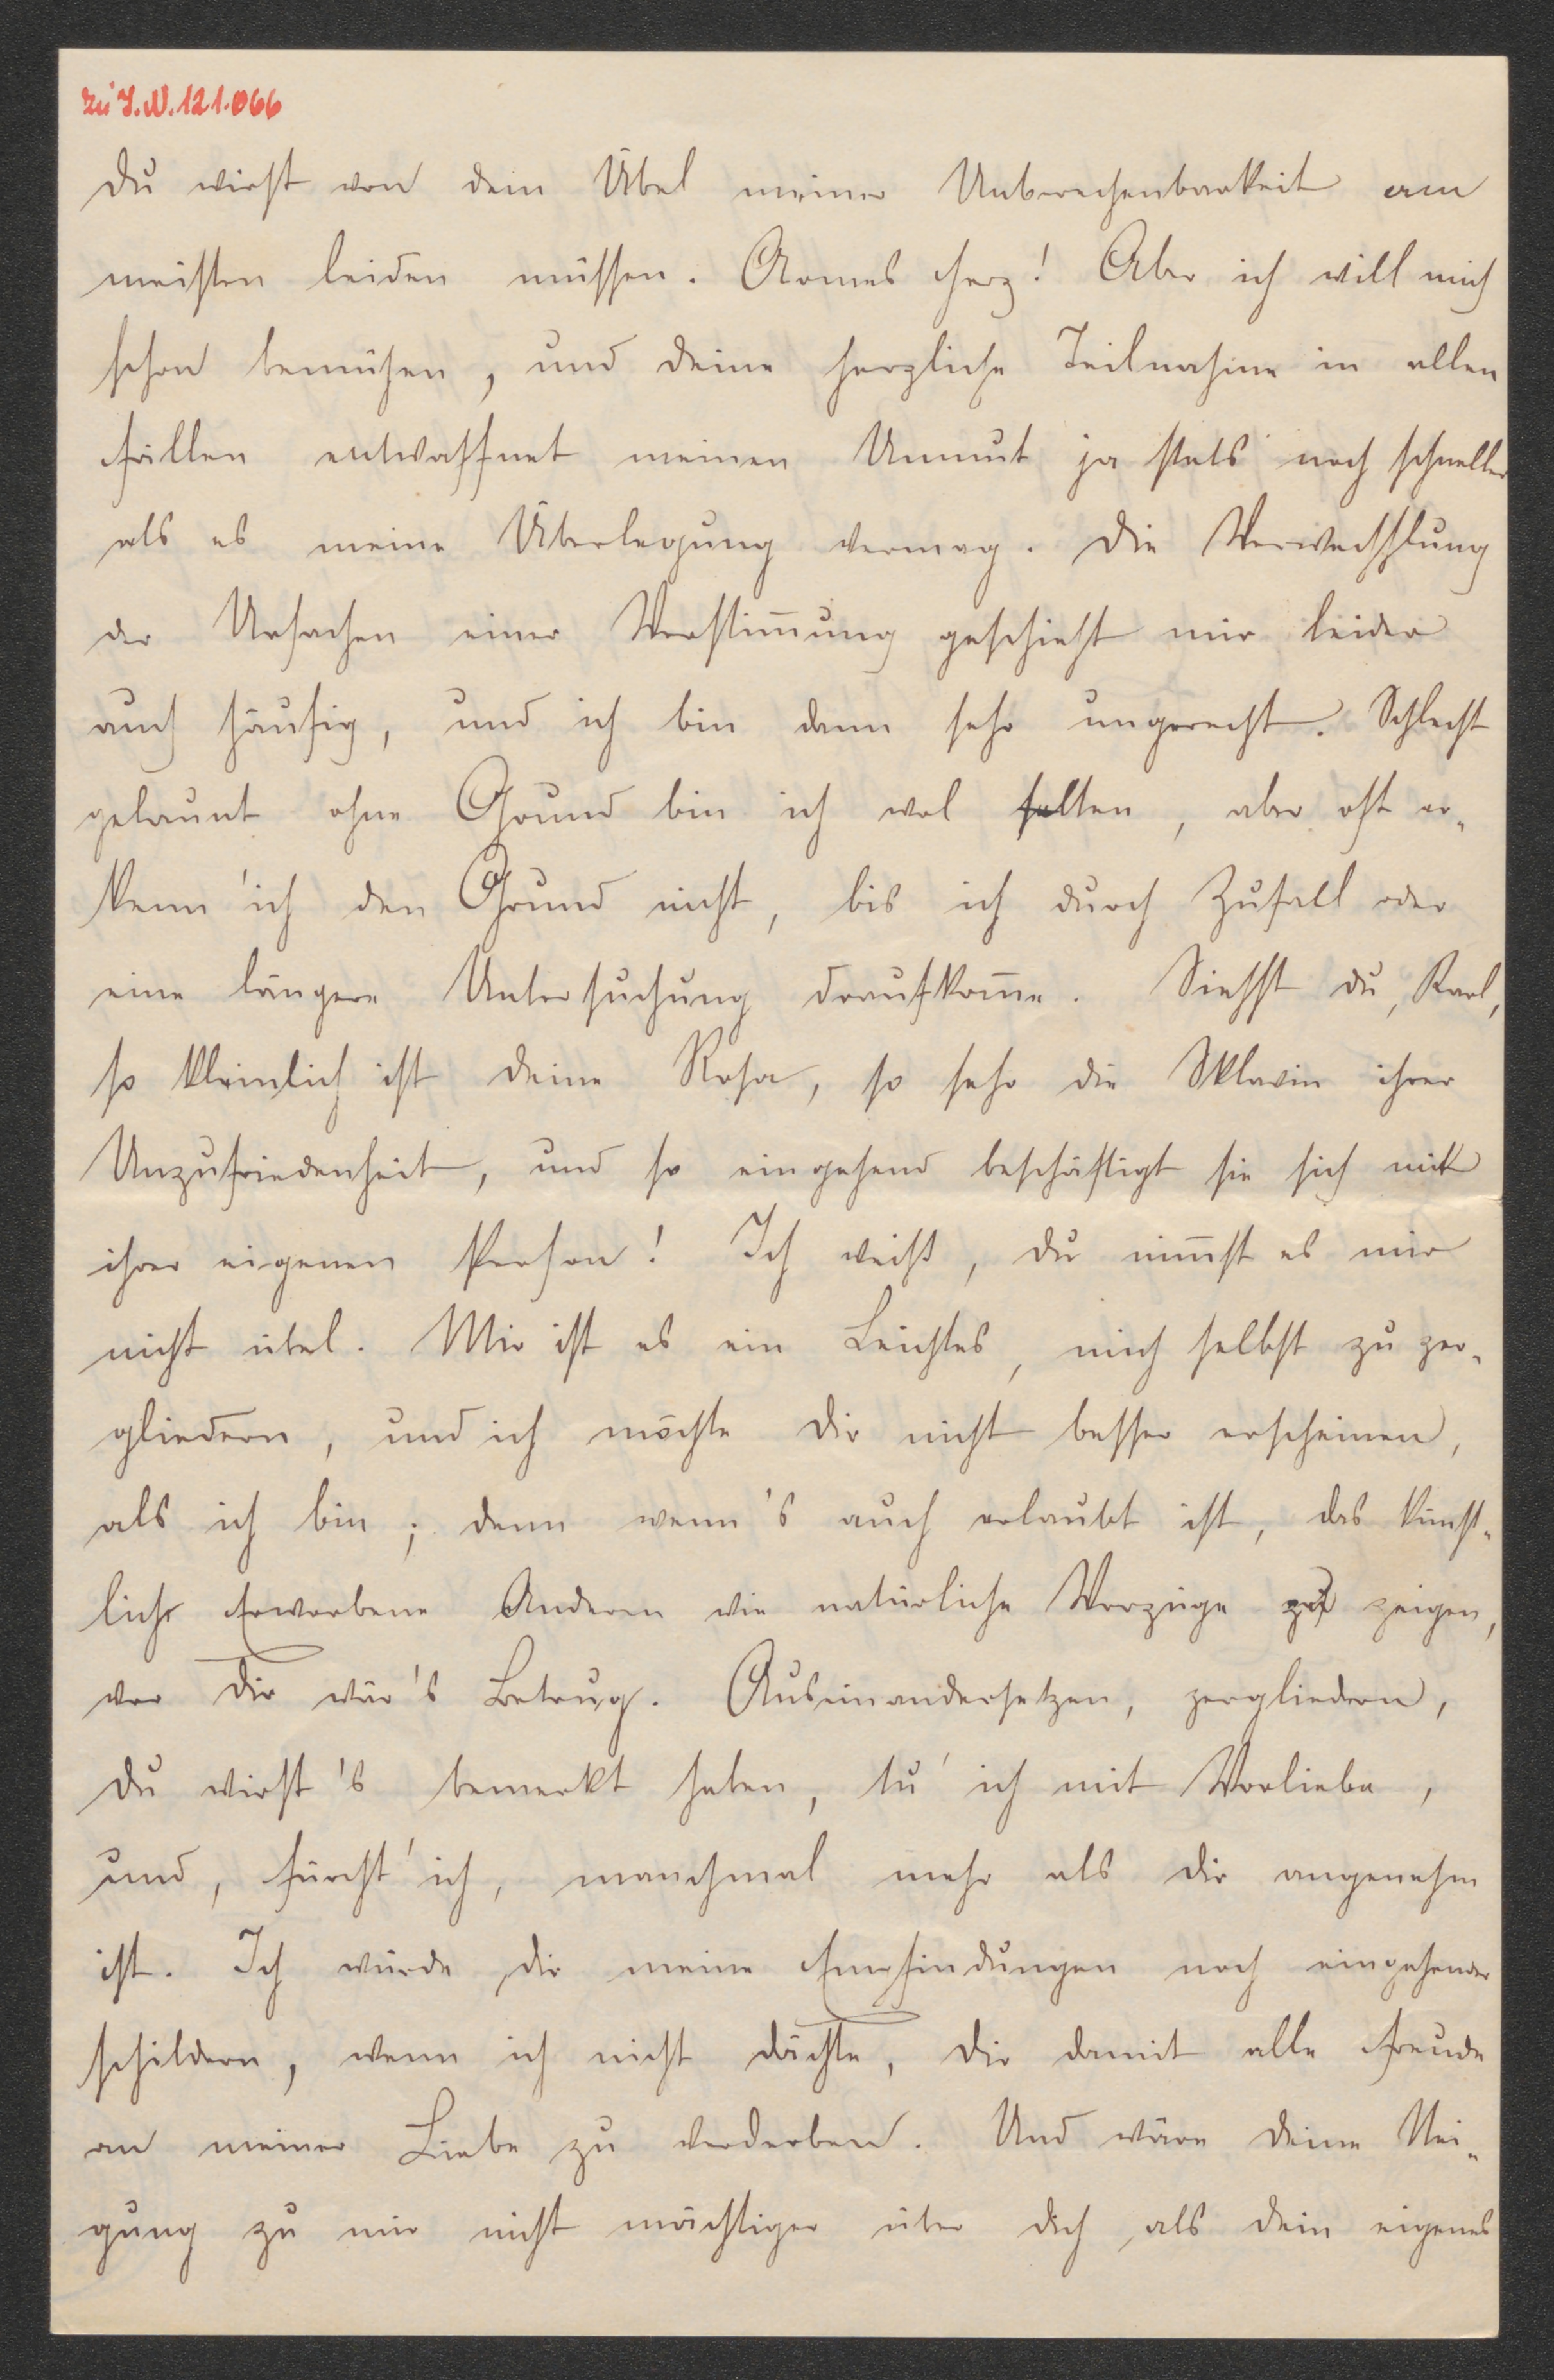 zu I.N. 121.066
du wirst von dem Übel meiner Unberechenbarkeit am
meisten leiden müssen. Armes Herz! Aber ich will mich
schon bemühen, und deine herzliche Teilnahme in allen
Fällen entwaffnet meinen Unmut ja stets noch schneller
als es meine Überlegung vermag. Die Verwechslung
der Ursachen einer Verstim̄ung geschieht mir leider
auch häufig, und ich bin dann sehr ungerecht. Schlecht
gelaunt ohne Grund bin ich wol selten, aber oft er-
kenn' ich den Grund nicht, bis ich durch Zufall oder
eine längere Untersuchung draufkom̄e. Siehst du, Karl,
so kleinlich ist deine Rosa, so sehr die Sklavin ihrer
Unzufriedenheit, und so eingehend beschäftigt sie sich mit
ihrer eigenen Person! Ich weiß, du nim̄st es mir
nicht übel. Mir ist es ein Leichtes, mich selbst zu zer-
gliedern, und ich möchte dir nicht besser erscheinen,
als ich bin; denn wenn's auch erlaubt ist, das künst-
lich Erworbene Anderen wie natürliche Vorzüge zu zeigen,
vor dir wär's Betrug. Auseinandersetzen, zergliedern,
du wirst's bemerkt haben, tu' ich mit Vorliebe,
und, fürcht' ich, manchmal mehr als dir angenehm
ist. Ich würde dir meine Empfindungen noch eingehender
schildern, wenn ich nicht dächte, dir damit alle Freude
an meiner Liebe zu verderben. Und wäre deine Nei-
gung zu mir nicht mächtiger über dich als dein eigenes